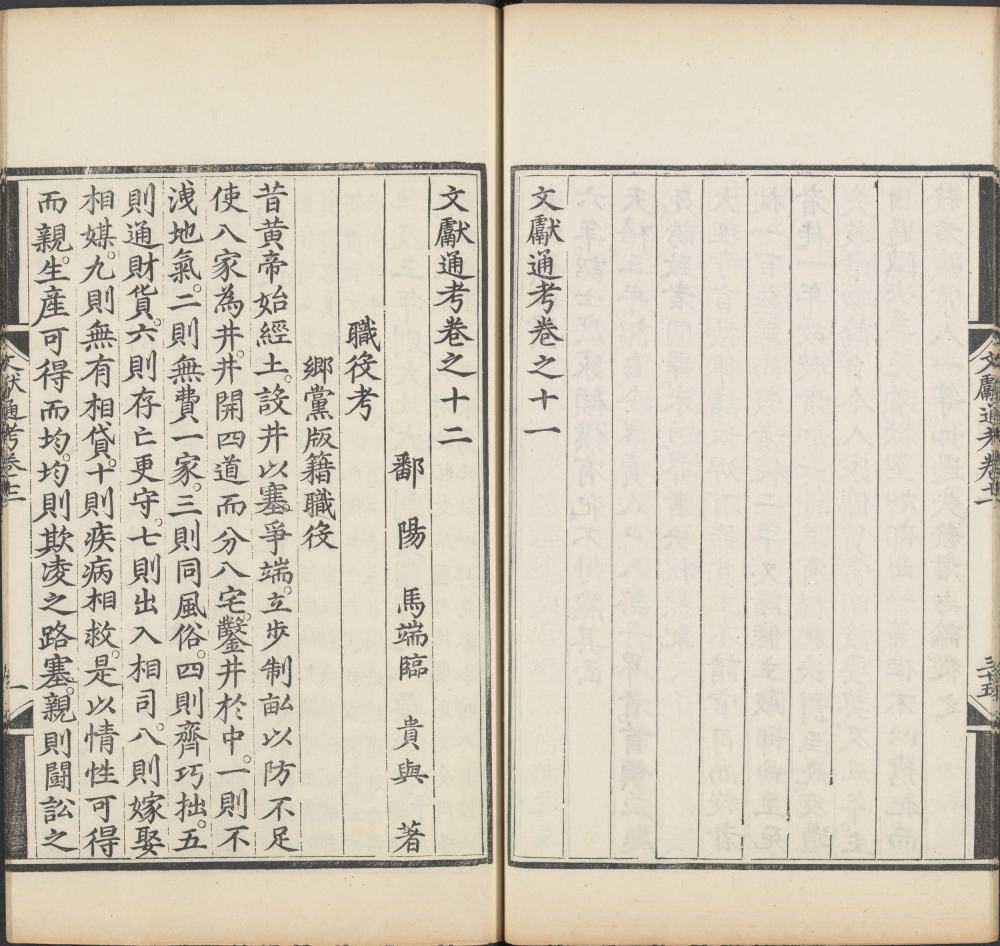 文獻通考卷之十一
文獻通考卷之十二
鄱陽　馬端臨　貴與　著
職役考
鄉黨版籍職役
昔黃帝始經土。設井以塞爭端。立步制畝以防不足
使八家為井。井開四道而分八宅。鑿井於中。一則不
洩地氣。二則無費一家。三則同風俗。四則齊巧拙。五
則通財貨。六則存亡更守。七則出入相司。八則嫁娶
相媒。九則無有相貸。十則疾病相救。是以情性可得
而親。生產可得而均。均則欺凌之路塞。親則鬬訟之
文獻通考卷十二
一